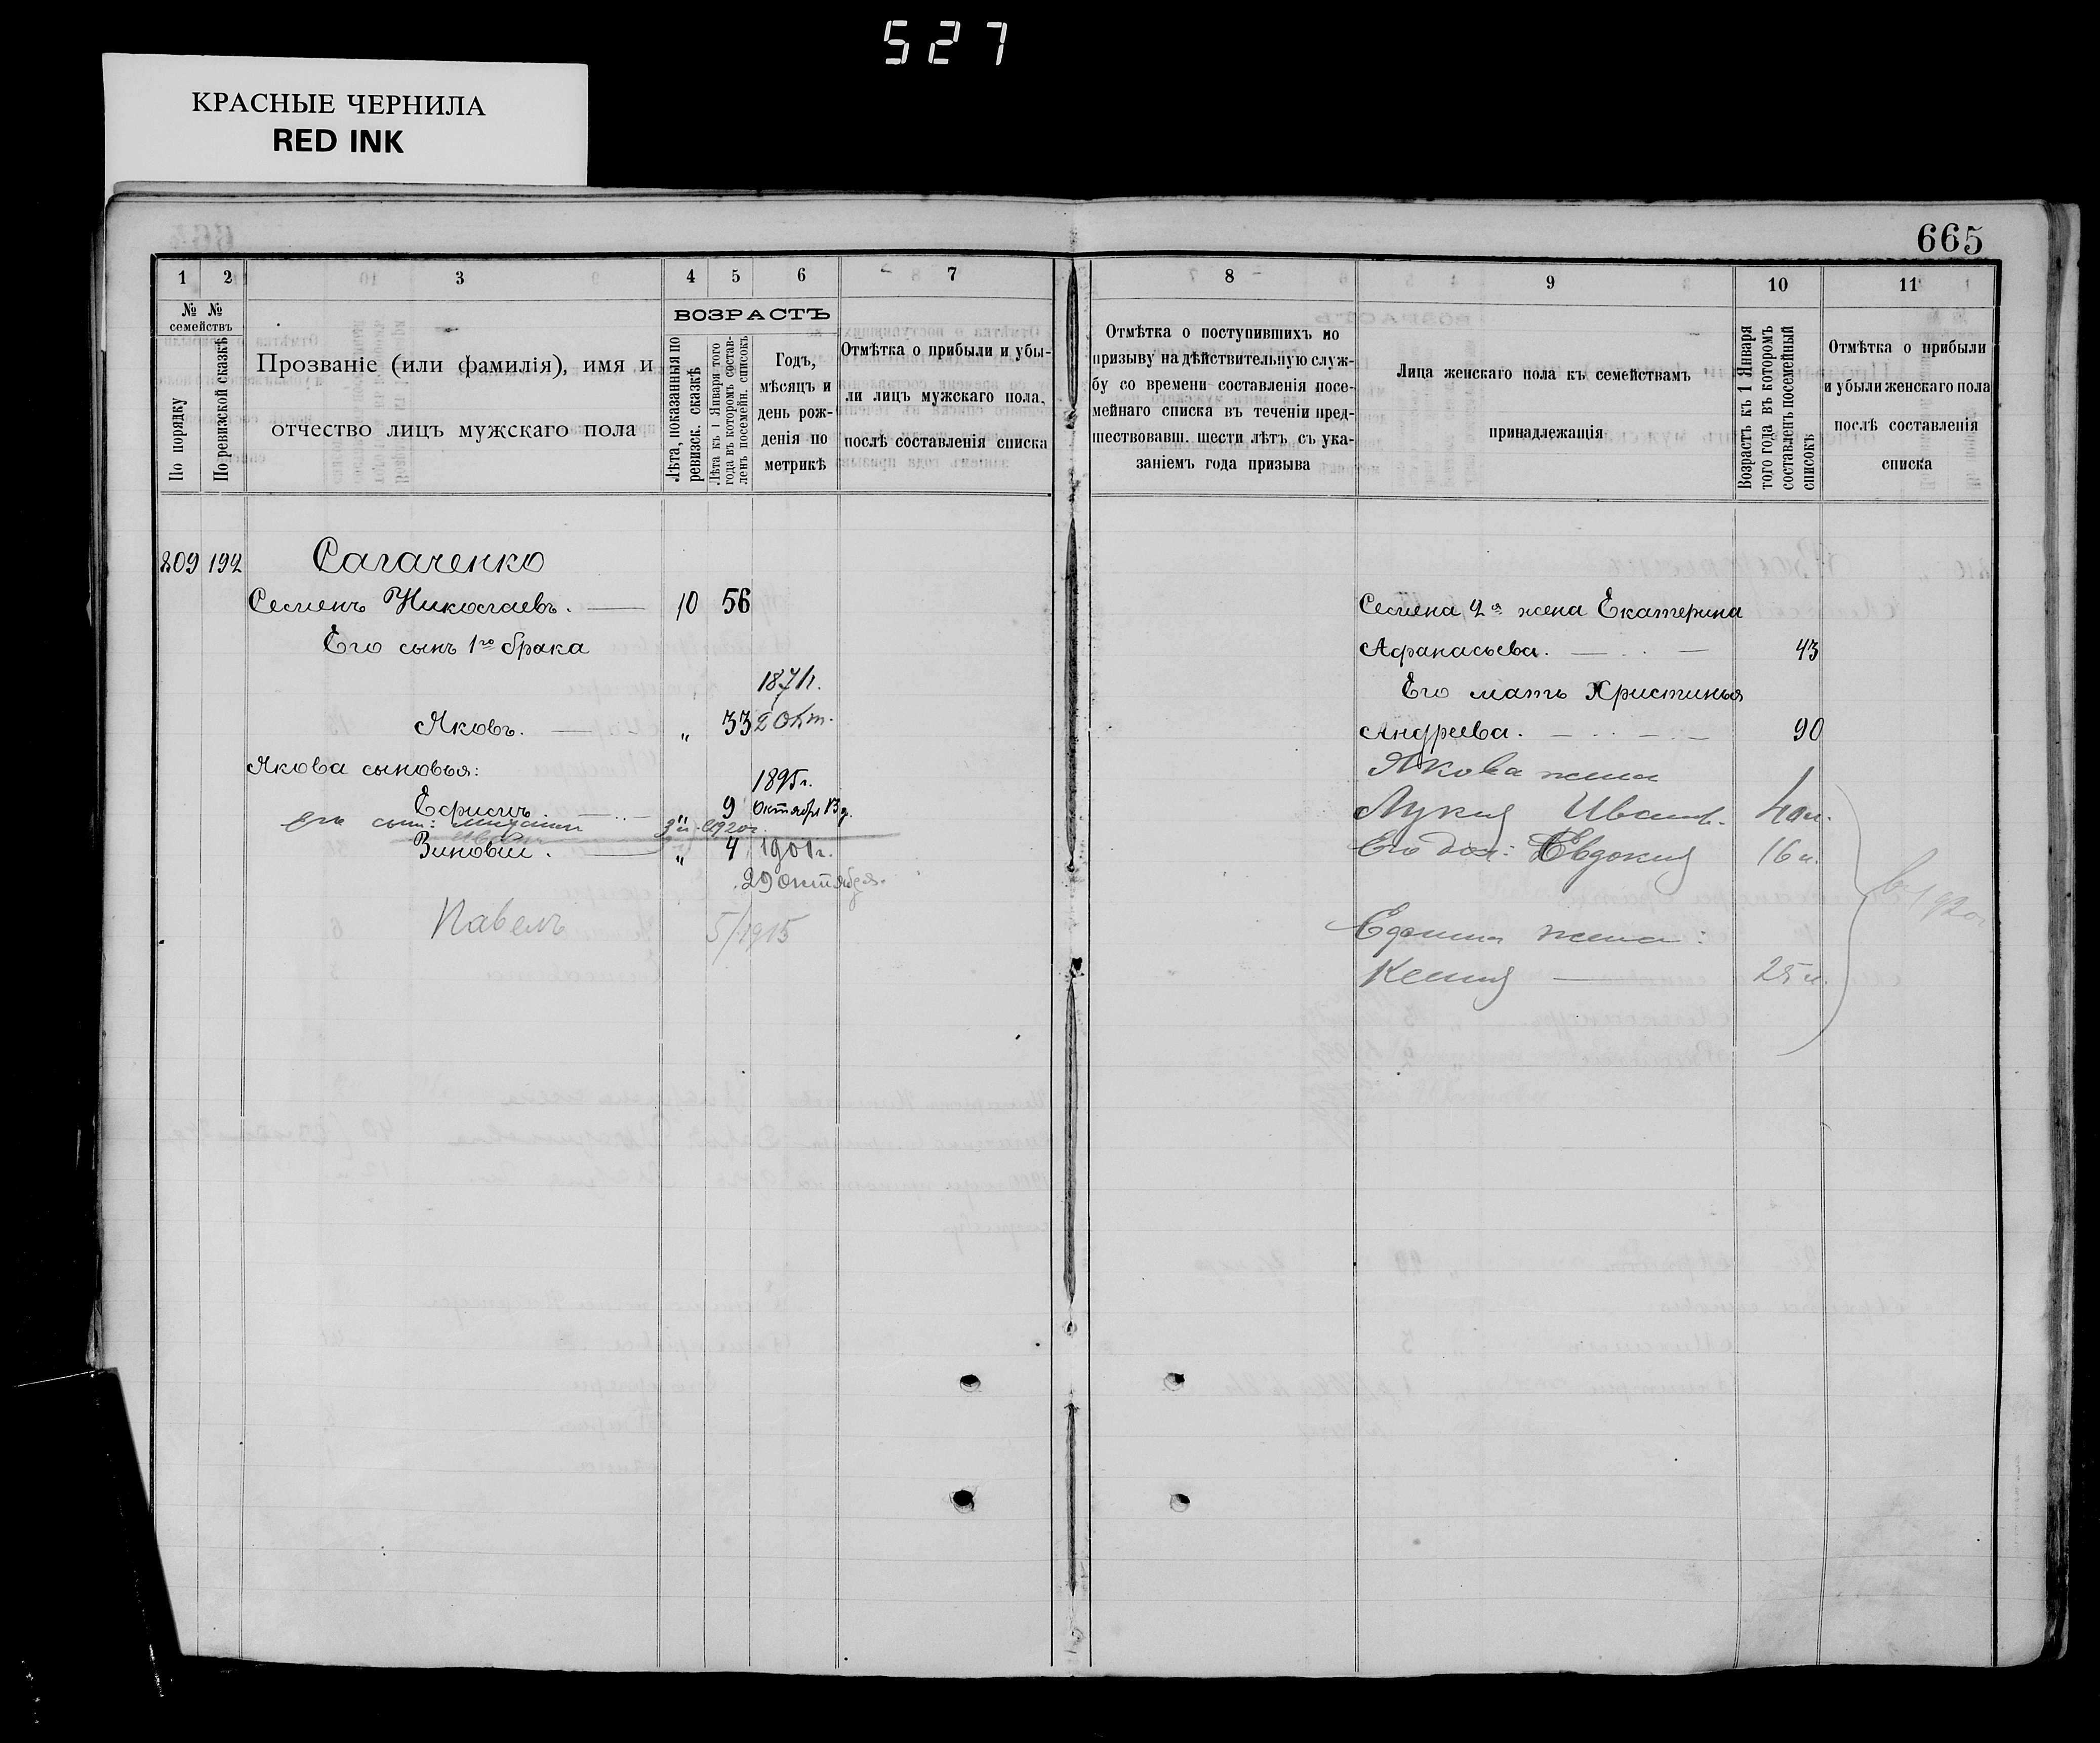 527
КРАСНЫЕ ЧЕРНИЛА
RED INK
665
1 2 3 4 5 6 7 8 9 10 11
№ № семействъ
По порядку
По ревизской сказкѣ
Прозваніе (или фамилія), имя и
отчество лицъ мужскаго пола
ВОЗРАСТЪ
Лѣта, показанныя по
ревизск. сказкѣ
Лѣта къ 1 Января того
года въ которомъ состав-
ленъ посемейн. списокъ
Годъ,
мѣсяцъ и
день рож-
денія по
метрикѣ
Отмѣтка о прибыли и убы-
ли лицъ мужскаго пола,
послѣ составленія списка
Отмѣтка о поступившихъ по
призыву на дѣйствительную служ-
бу со времени составленія посе-
мейнаго списка въ теченіи пред-
шествовавш. шести лѣтъ съ ука-
заніемъ года призыва
Лица женскаго пола къ семействамъ
принадлежащія
Возрастъ къ 1 Января
того года въ которомъ
составленъ посемейный
списокъ
Отмѣтка о прибыли
и убыли женскаго пола
послѣ составленія
списка
209 192 Сагаченко
Семенъ Николаевъ. 10 56
Его сынъ 1го брака
1871г.
Яковъ. „ 33 2 Окт.
Якова сыновья:
1895г.
Ефимъ. „ 9 Октября 13 д.
его сынъ: 1920г.
Зиновій. „ 4 1901г.
29 октября.
Павелъ 5/1915
Семена 2я жена Екатерина
Афанасьева. 43
Его мать Христинья
Андреева. 90
Якова жена
Лукия Иванов. 40 л.
Его доч: Евдокия 16 л.
жена:
Ксения 25 л.
1920г